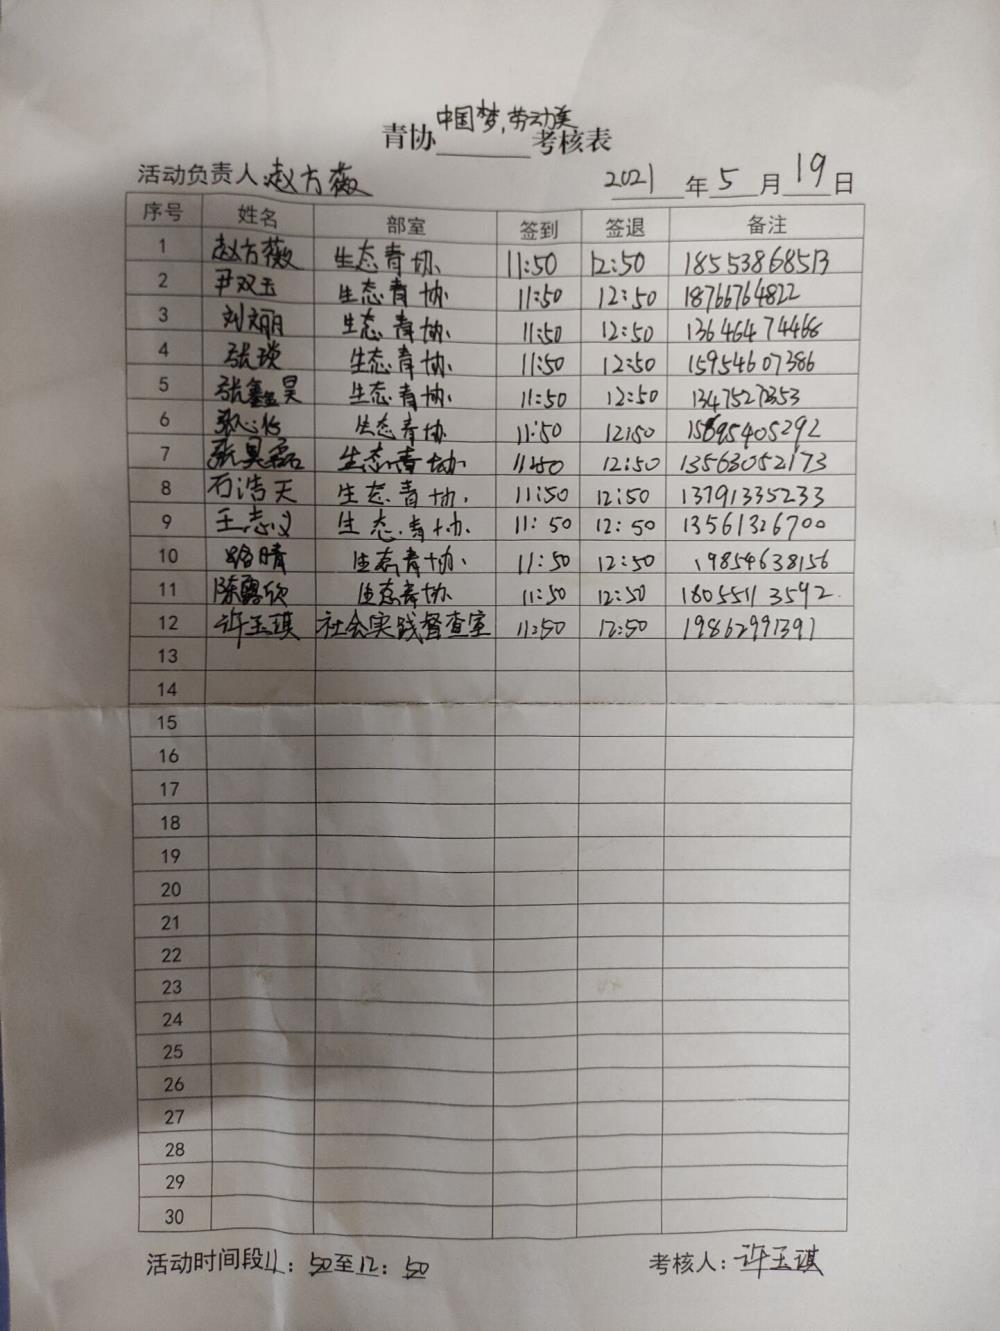 中国梦,劳动美
青协______考核表
活动负责人:赵方薇 2021年5月19日
序号 姓名 部室 签到 签退 备注
1 赵方薇 生态青协 11:50 12:50 18553868513
2 尹双玉 生态青协 11:50 12:50 18766764822
3 刘文丽 生态青协 11:50 12:50 13646474466
4 张琰 生态青协 11:50 12:50 15954607386
5 张鑫昊 生态青协 11:50 12:50 13475272353
6 张心怡 生态青协 11:50 12:50 15895405292
7 张昊磊 生态青协 11:50 12:50 13563052173
8 石浩天 生态青协 11:50 12:50 13791335233
9 王志义 生态青协 11:50 12:50 13561326700
10 路晴 生态青协 11:50 12:50 19854638156
11 陈露欣 生态青协 11:50 12:50 18055113592
12 许玉琪 社会实践督查室 11:50 12:50 19862991391
13
14
15
16
17
18
19
20
21
22
23
24
25
26
27
28
29
30
活动时间段11:50至12:50 考核人:许玉琪